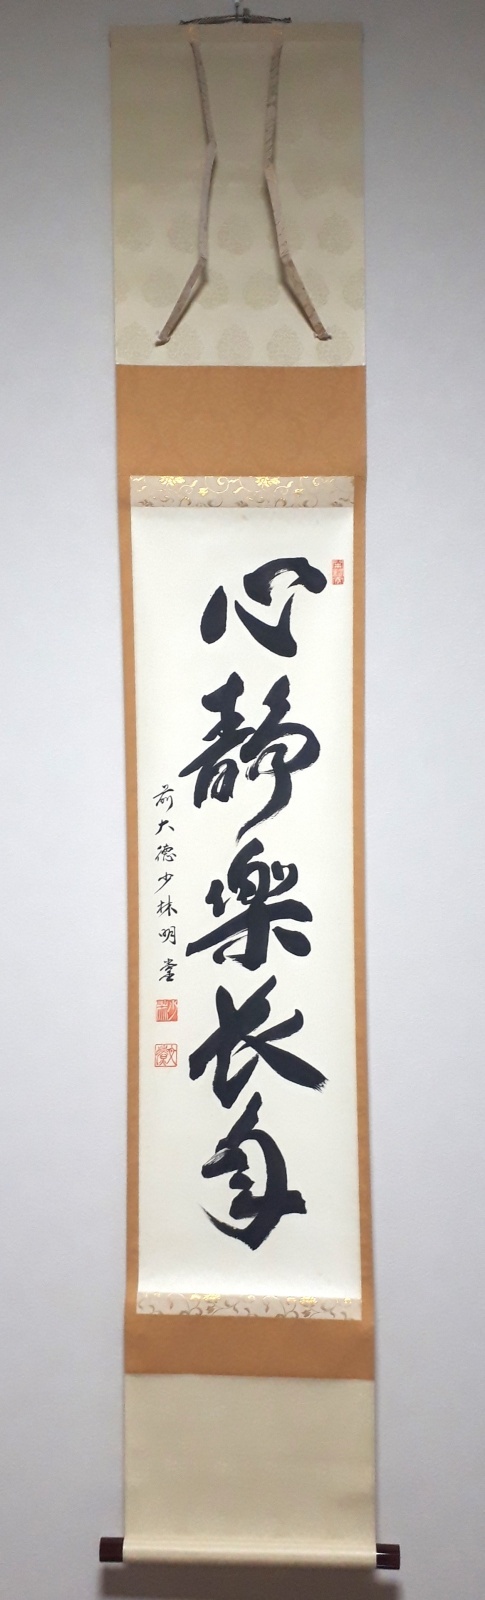 心静楽長年
前大徳少林明堂